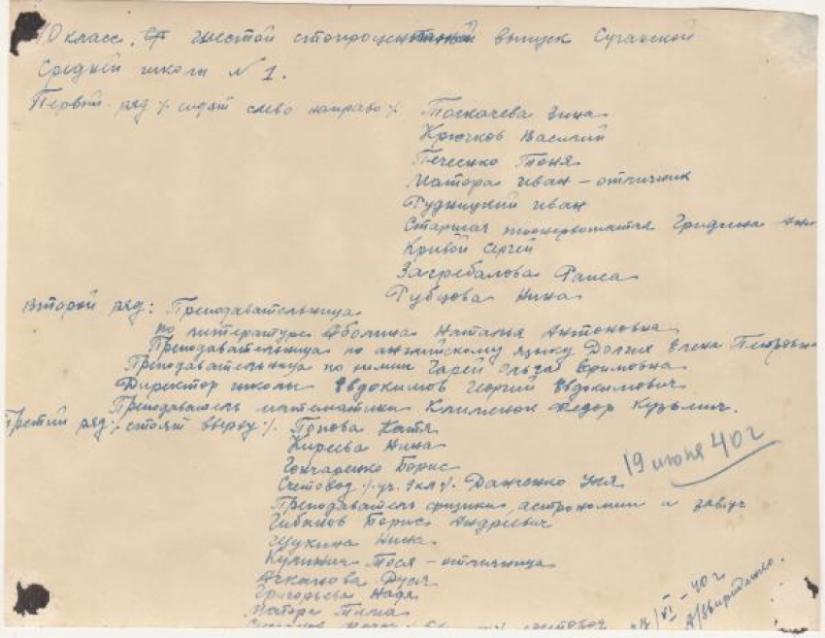 10 класс. шестой стопроцентный выпуск Сучанской
Средней школы № 1.
Первый ряд /: сидят слево направо :/. Толкачева Зина
Крючков Василий
Печенко Тоня
Матора Иван - отличник
Рудницкий Иван
Старшая пионервожатая Гридина
Кривой Сергей
Загребалова Раиса
Рубцова Нина
Второй ряд: Преподавательница
по литературе Аболина Наталья Антоновна
Преподавательница по английскому языку Долгия Елена Петровна
Преподавательница по химии Гарей Ольга Ефимовна
Директор школы Евдокимов Георгий Евдокимович
Преподаватель математики Клименюк Федор Кузьмич.
Третий ряд /: стоят вверху :/. Попова Катя
Киреева Нина
Гончаренко Борис
Счетовод /: уч. 9 кл :/. Данченко
Преподаватель физики, астрономии и завуч
Борис Андреевич
Щукина Нина
Кулинич Тося - отличница
Аскашова Дуся
Григорьева Надя
Матора
счетовод
19 июня 40 г
/VI - 40 г